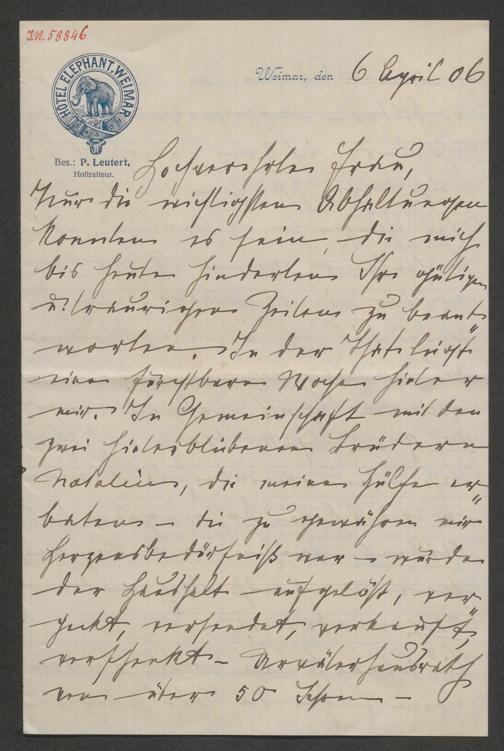 I.N. 58846
HOTEL ELEPHANT, WEIMAR
Bes.: P. Leutert,
Hoftraiteur.
Weimar, den 6 April 06
Hochverehrte Frau,
Nur die wichtigsten Abhaltungen
konnten es sein, die mich
bis heute hinderten Ihre gütigen
u. traurigen Zeilen zu beant-
worten. In der That liegt
eine furchtbare Woche hinter
mir. In Gemeinschaft mit den
zwei hinterbliebenen Brüdern
Nataliens, die meine Hülfe er-
baten – die zu gewähren mir
Herzensbedürfniß war – wurde
der Haushalt aufgelöst, ver-
packt, versendet, verkauft,
verschenkt – Urväterhausrath
von über 50 Jahren –